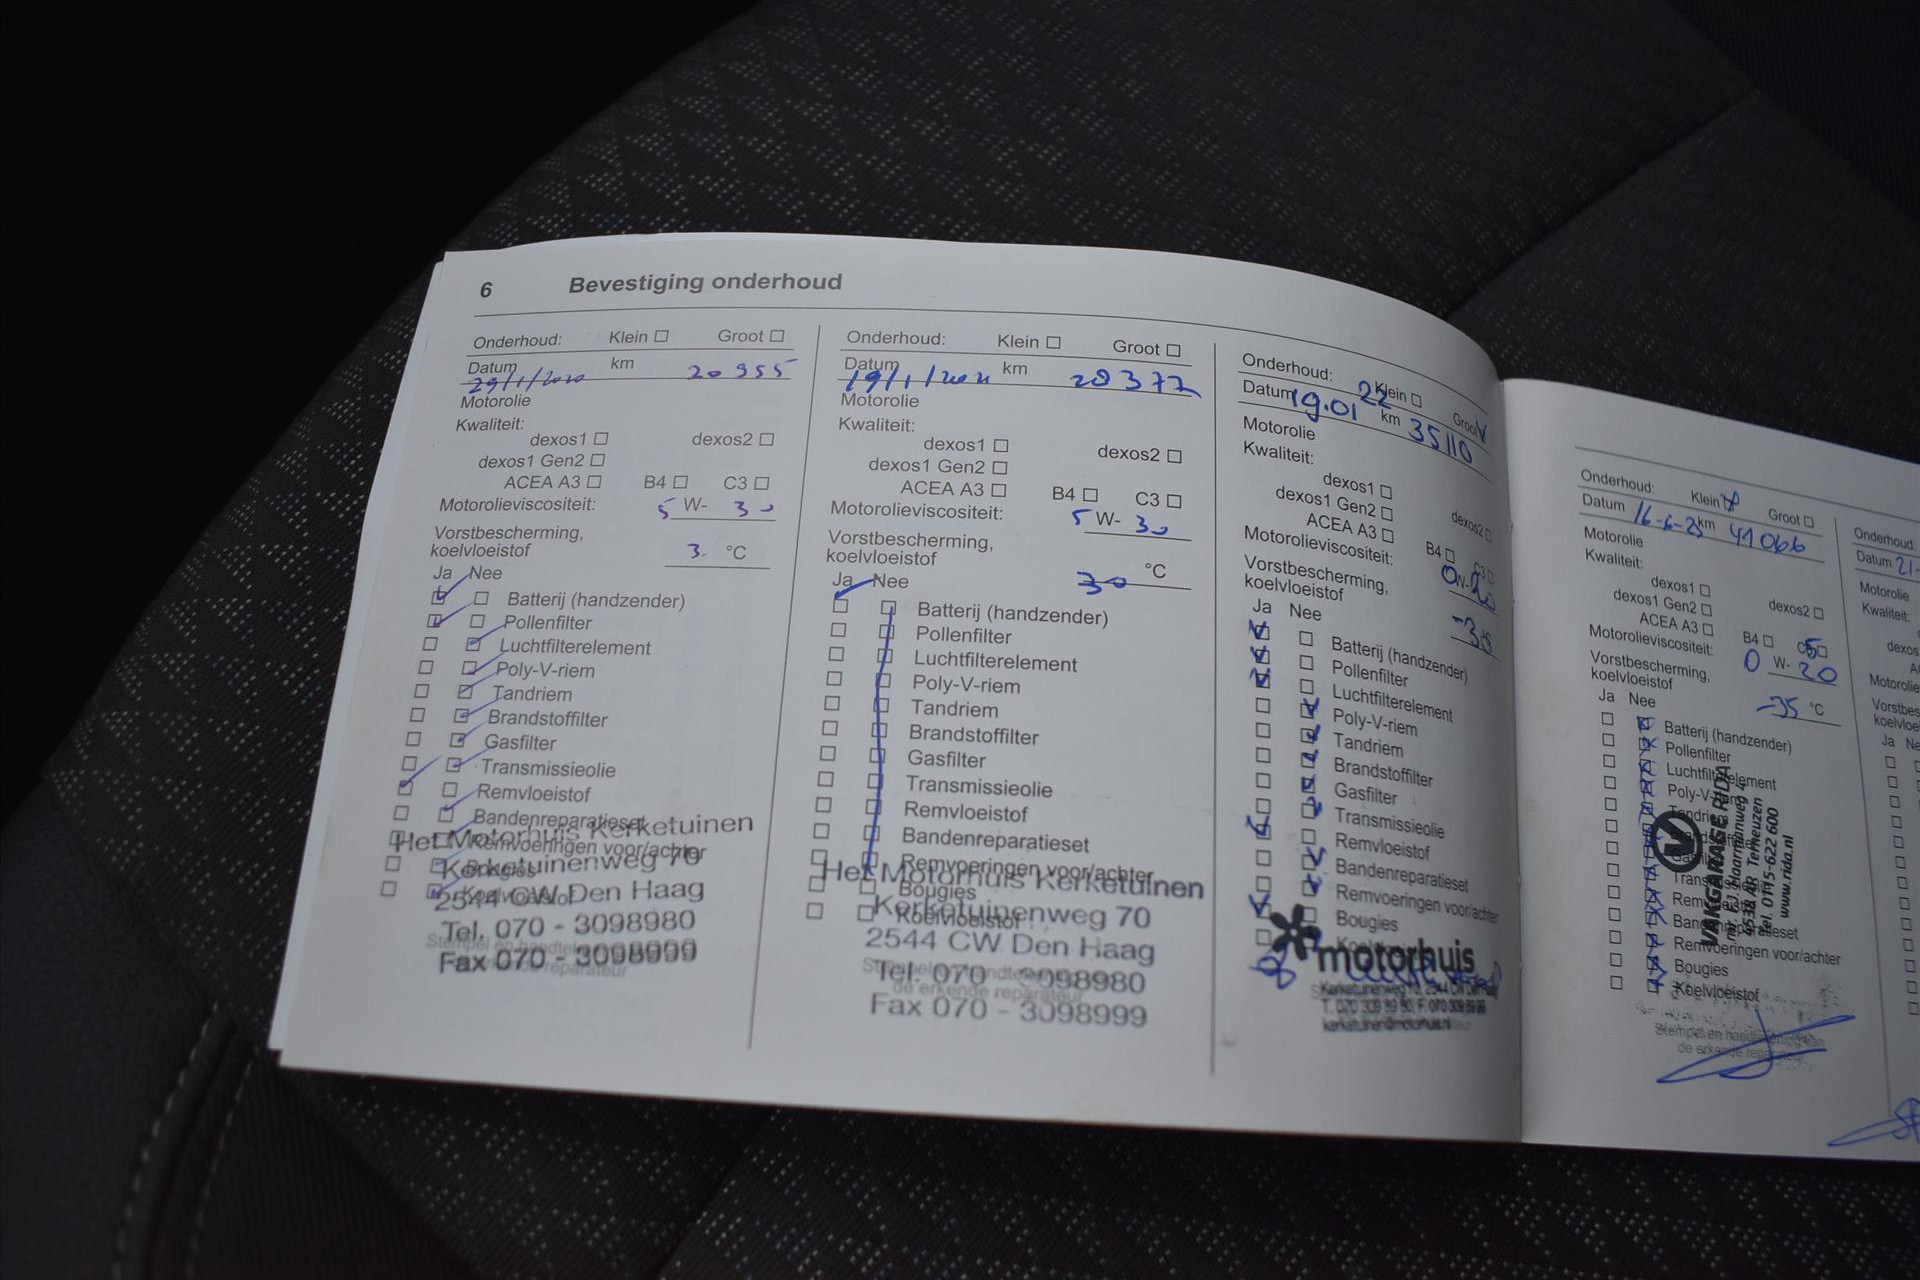 6 Bevestiging onderhoud
Onderhoud: Klein Groot
Datum 29/1/2020 km 20955
Motorolie
Kwaliteit:
dexos1 dexos2
dexos1 Gen2
ACEA A3 B4 C3
Motorolieviscositeit: 5 W- 30
Vorstbescherming,
koelvloeistof 3. °C
Ja Nee
Batterij (handzender)
Pollenfilter
Luchtfilterelement
Poly-V-riem
Tandriem
Brandstoffilter
Gasfilter
Transmissieolie
Remvloeistof
Bandenreparatieset
Remvoeringen voor/achter
Bougies
Koelvloeistof
Het Motorhuis Kerketuinen
Kerketuinenweg 70
2544 CW Den Haag
Tel. 070 - 3098980
Fax 070 - 3098999
Onderhoud: Klein Groot
Datum 19/1/2021 km 28377
Motorolie
Kwaliteit:
dexos1 dexos2
dexos1 Gen2
ACEA A3 B4 C3
Motorolieviscositeit: 5 W- 30
Vorstbescherming,
koelvloeistof 30 °C
Ja Nee
Batterij (handzender)
Pollenfilter
Luchtfilterelement
Poly-V-riem
Tandriem
Brandstoffilter
Gasfilter
Transmissieolie
Remvloeistof
Bandenreparatieset
Remvoeringen voor/achter
Bougies
Koelvloeistof
Het Motorhuis Kerketuinen
Kerketuinenweg 70
2544 CW Den Haag
Tel. 070 - 3098980
Fax 070 - 3098999
Onderhoud: Klein Groot
Datum 19.01 22 km 35110
Motorolie
Kwaliteit:
dexos1
dexos1 Gen2 dexos2
ACEA A3 B4 C3
Motorolieviscositeit: 0 W- 20
Vorstbescherming,
koelvloeistof
Ja Nee
Batterij (handzender)
Pollenfilter
Luchtfilterelement
Poly-V-riem
Tandriem
Brandstoffilter
Gasfilter
Transmissieolie
Remvloeistof
Bandenreparatieset
Remvoeringen voor/achter
Bougies
motorhuis
Kerketuinenweg 70, 2544 CW Den Haag
kerketuinen@motorhuis.nl
Onderhoud: Klein Groot
Datum 16-6-23 km 41066
Motorolie
Kwaliteit:
dexos1 dexos2
dexos1 Gen2
ACEA A3 B4 C5
Motorolieviscositeit: 0 W- 20
Vorstbescherming,
koelvloeistof -35 °C
Ja Nee
Batterij (handzender)
Pollenfilter
Luchtfilterelement
Poly-V-riem
Tandriem
Transmissieolie
Remvloeistof
Bandenreparatieset
Remvoeringen voor/achter
Bougies
Koelvloeistof
VAKGARAGE RIDA
4538 AR Terneuzen
Tel. 0115-622 600
www.rida.nl
Stempel en handtekening van
de erkende reparateur
Onderhoud:
Datum 21-
Motorolie
Kwaliteit:
dexos
Motorolie
Vorstbes
koelvloei
Ja Ne